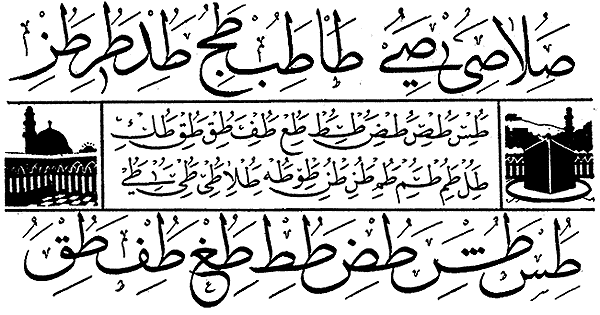 صلا صى صے طا طب طج طد طر طز
طس طض طض طط طع طف طق طق طك
طل طم طم طم طن طن طو طه طلا طى طى طے
طس طش طض طط طغ طف طق